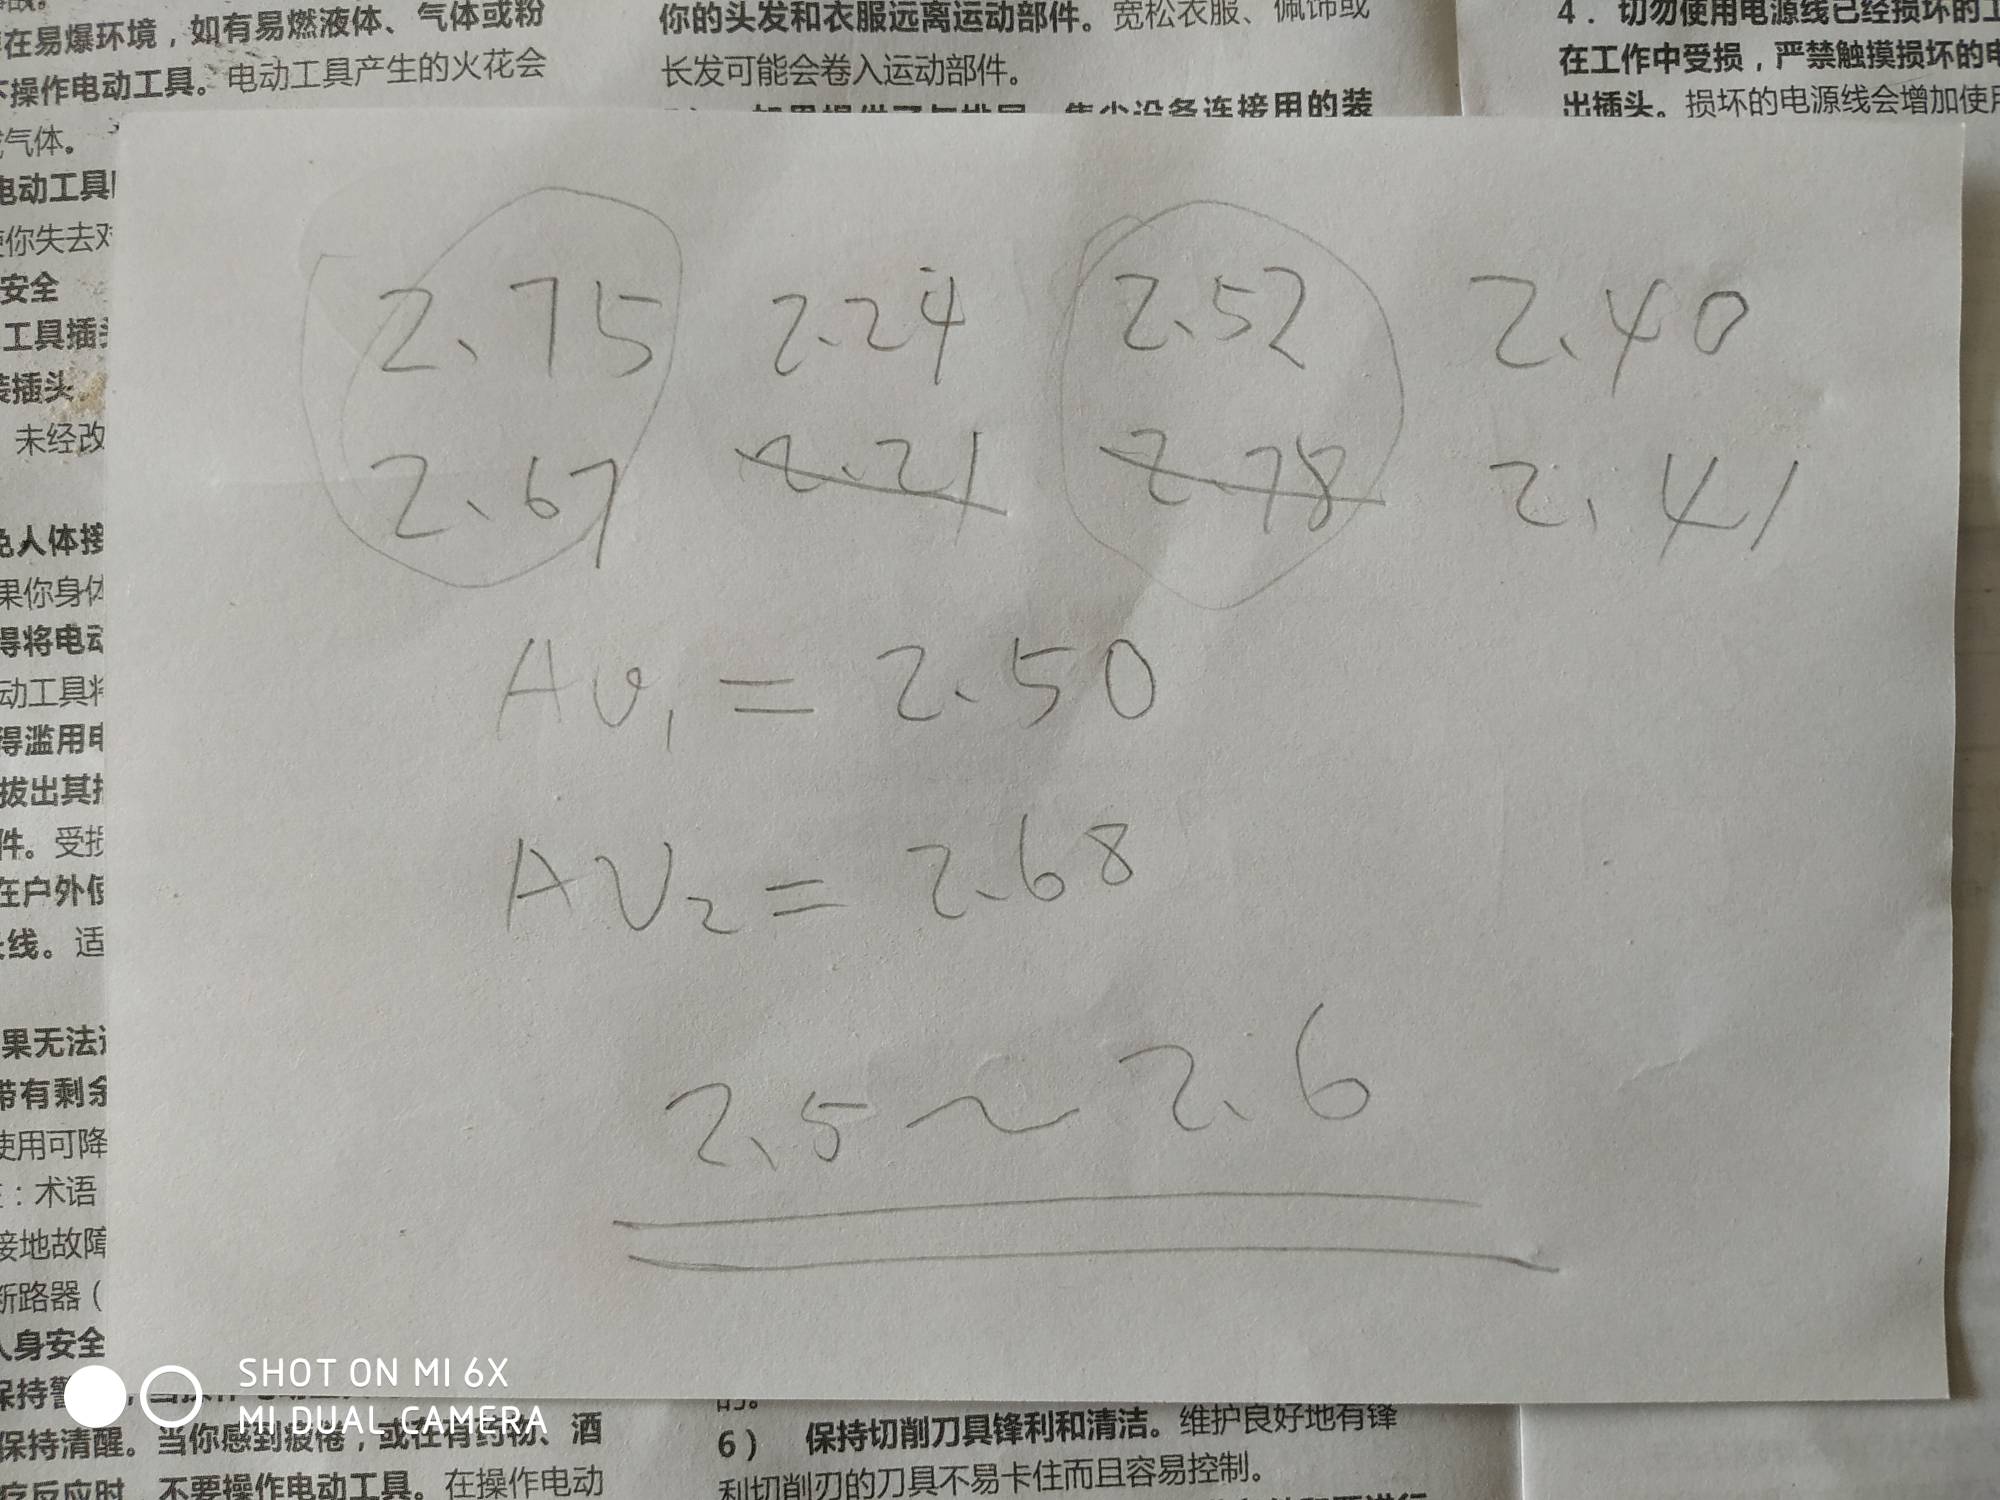 在易爆环境，如有易燃液体、气体或粉
不操作电动工具。电动工具产生的火花会
气体。
电动工具
使你失去对
安全
工具插头
装插头
未经改
免人体接
果你身体
得将电动
动工具将
得滥用电
拔出其插
件。受损
在户外使
长线。适
果无法避
带有剩余
使用可降
注：术语
接地故障
断路器（
人身安全
保持警
保持清醒。当你感到疲倦，或在有药物、酒
疗反应时，不要操作电动工具。在操作电动
你的头发和衣服远离运动部件。宽松衣服、佩饰或
长发可能会卷入运动部件。
如果提供了与排屑、集尘设备连接用的装
4．切勿使用电源线已经损坏的工
在工作中受损，严禁触摸损坏的电
出插头。损坏的电源线会增加使用
2.75 2.24 2.52 2.40
2.67 2.21 2.78 2.41
AV1 = 2.50
AV2 = 2.68
2.5~2.6
6） 保持切削刀具锋利和清洁。维护良好地有锋
利切削刃的刀具不易卡住而且容易控制。
SHOT ON MI 6X
MI DUAL CAMERA